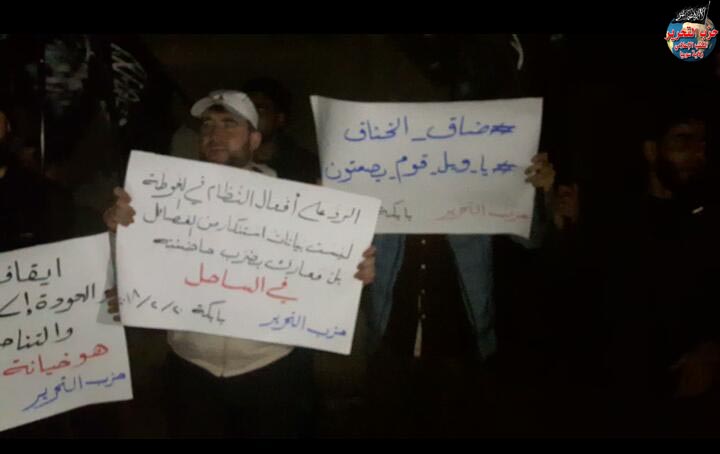 حزب التحرير
المكتب الإعلامي
ولاية سوريا
#ضاق_الخناق
#يا_ويل_قوم_يصمتون
حزب التحرير بابكة
الرد على أفعال النظام في الغوطة
ليست بيانات استنكار من الفصائل
بل معارك بضرب حاضنته
في الساحل
حزب التحرير بابكة ٢٠/٢/
ايقاف
العودة
والتنا
هو خيانة
حزب التحرير